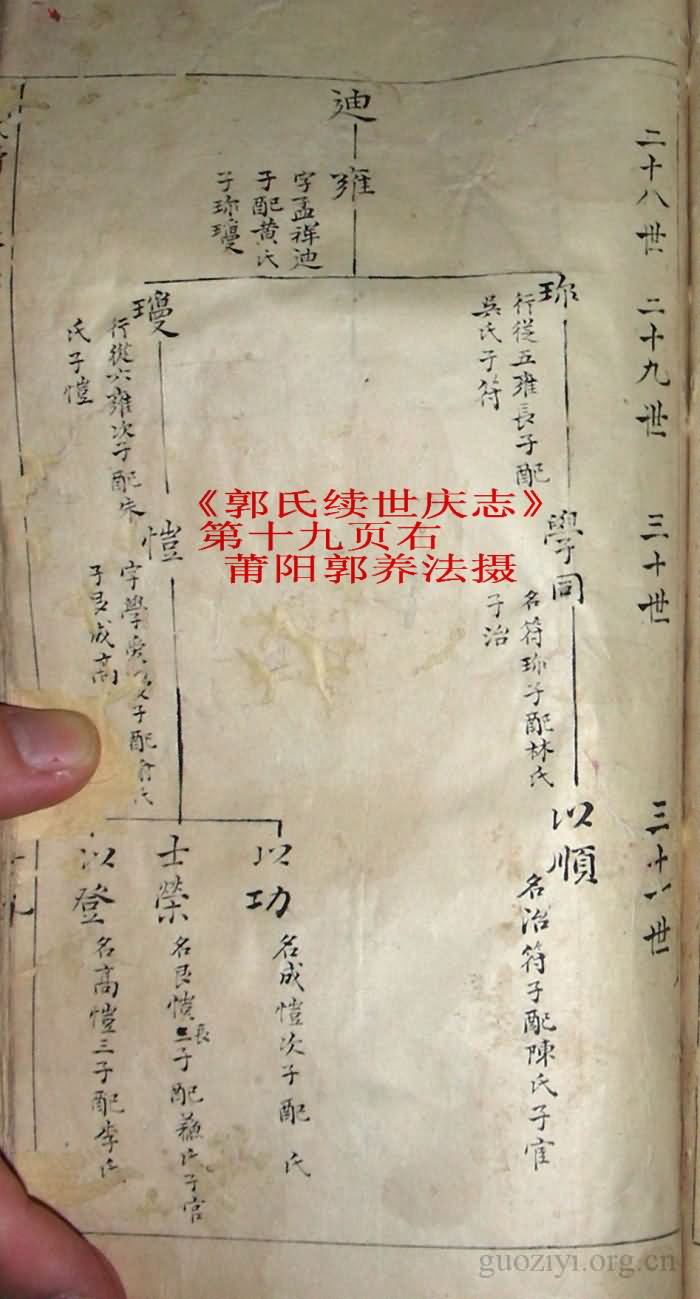 二十八世
二十九世
三十世
三十一世
迪
雍
字孟祥迪
子配黄氏
子珎瓊
珎
行從五雍長子配
吳氏子符
學同
名符珎子配林氏
子治
以順
名治符子配陳氏子官
瓊
行從六雍次子配朱
氏子愷
愷
字學 子配俞氏
子良成高
以功
名成愷次子配 氏
士榮
名良愷長子配蘇氏子官
以登
名高愷三子配李氏
《郭氏续世庆志》
第十九页右
莆阳郭养法摄
guoziyi.org.cn